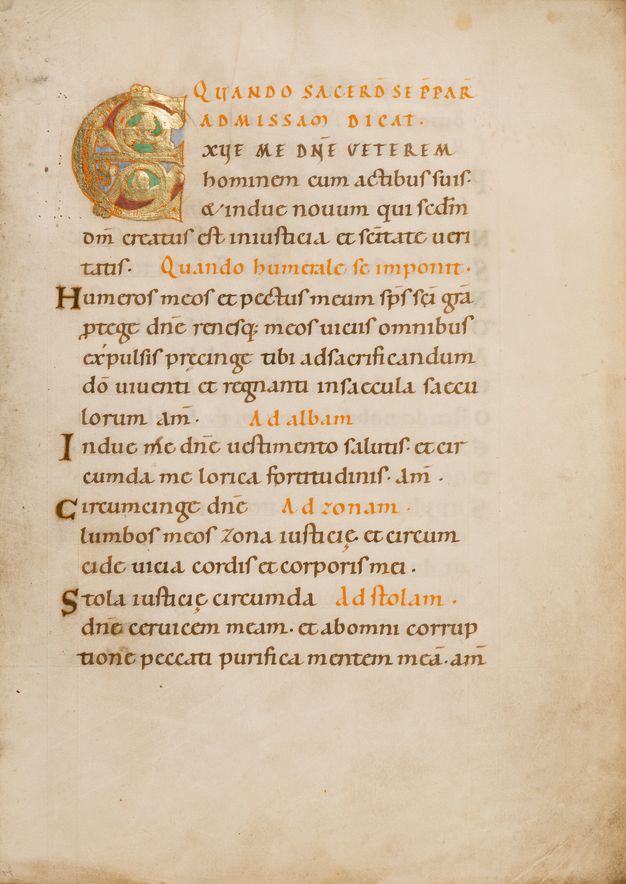 QUANDO SACERD̄ SE P̄PAR̄
AD MISSAM DICAT·
EXUE ME DN̄E VETEREM
hominem cum actibus suis·
& indue nouum qui scdm̄
dm̄ creatus est iniusticia et sc̄itate ueri
tatis· Quando humerale se imponit·
Humeros meos et pectus meum sp̄s sc̄i grā
ꝓtege dn̄e renesq; meos uiciis omnibus
expulsis pręcinge tibi adsacrificandum
dō uiuenti et regnanti insaecula saecu
lorum am̄· Ad albam
Indue me dn̄e uestimento salutis· et cir
cumda me lorica fortitudinis· am̄·
Circumcinge dn̄e Ad zonam·
lumbos meos zona iusticię· et circum
cide uicia cordis et corporis mei·
Stola iusticię circumda Ad stolam·
dn̄e ceruicem meam· et abomni corrup
tione peccati purifica mentem meā· am̄